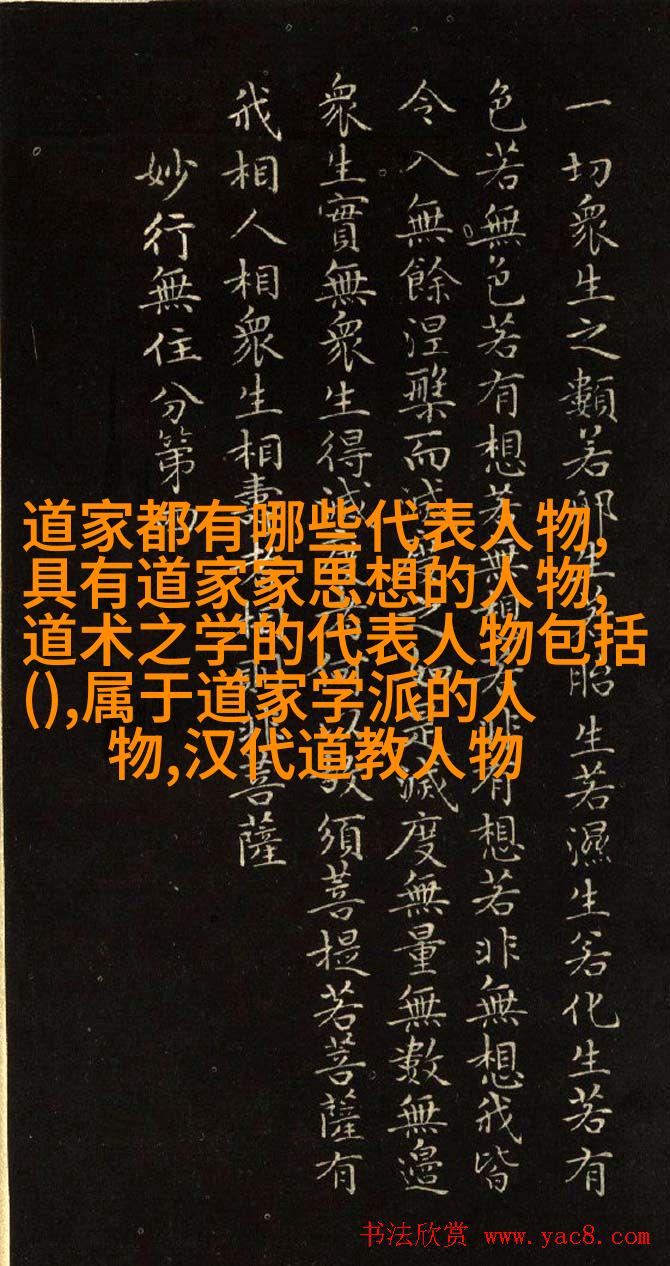 一切衆生之類若卵生若胎生若濕生若化生若有
色若無色若有想若無想若非有想若非無想我皆
令入無餘涅槃而滅度之如是滅度無量無數無邊
衆生實無衆生得滅度者何以故須菩提若菩薩有
我相人相衆生相壽者相即非菩薩
妙行無住分第四
道家都有哪些代表人物,
具有道家家思想的人物,
道术之学的代表人物包括
(),属于道家学派的人
物,汉代道教人物
书法欣赏 www.yac8.com